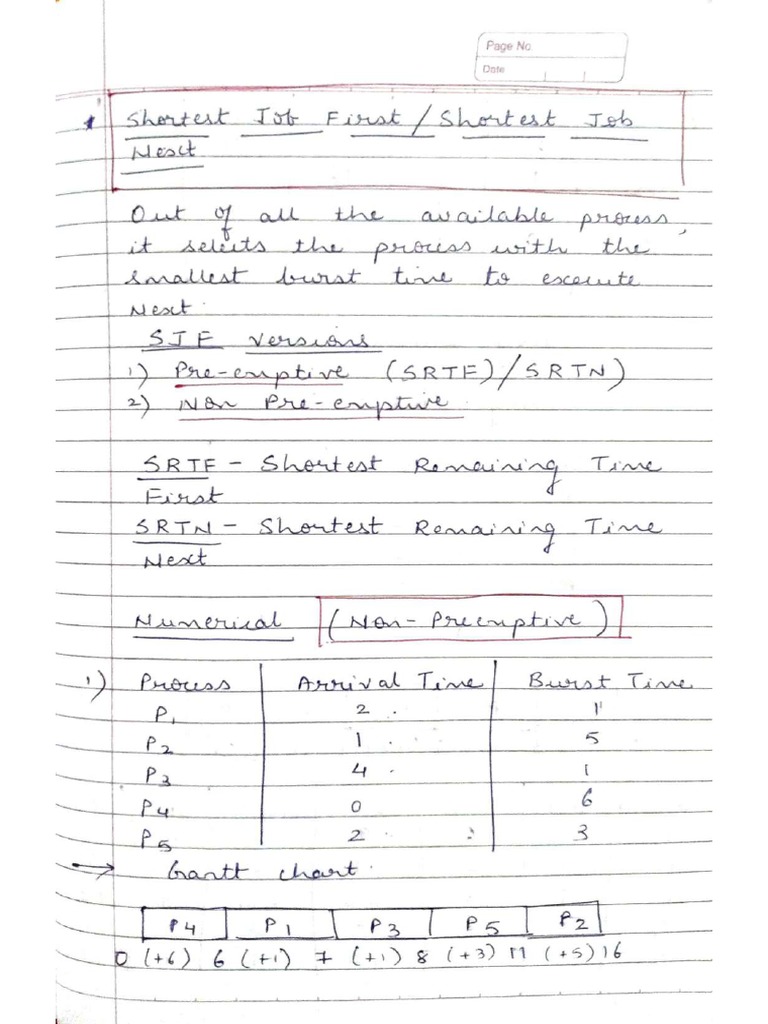 Page No.
Date
* Shortest Job First / Shortest Job
Next
Out of all the available process,
it selects the process with the
smallest burst time to execute
Next.
SJF versions
1) Pre-emptive (SRTF)/SRTN)
2) Non Pre-emptive.
SRTF - Shortest Remaining Time
First
SRTN - Shortest Remaining Time
Next
Numerical (Non-Preemptive)
1) Process Arrival Time Burst Time
P1 2 1
P2 1 5
P3 4 1
P4 0 6
P5 2 3
→ Gantt chart.
P4 P1 P3 P5 P2
0 (+6) 6 (+1) 7 (+1) 8 (+3) 11 (+5) 16